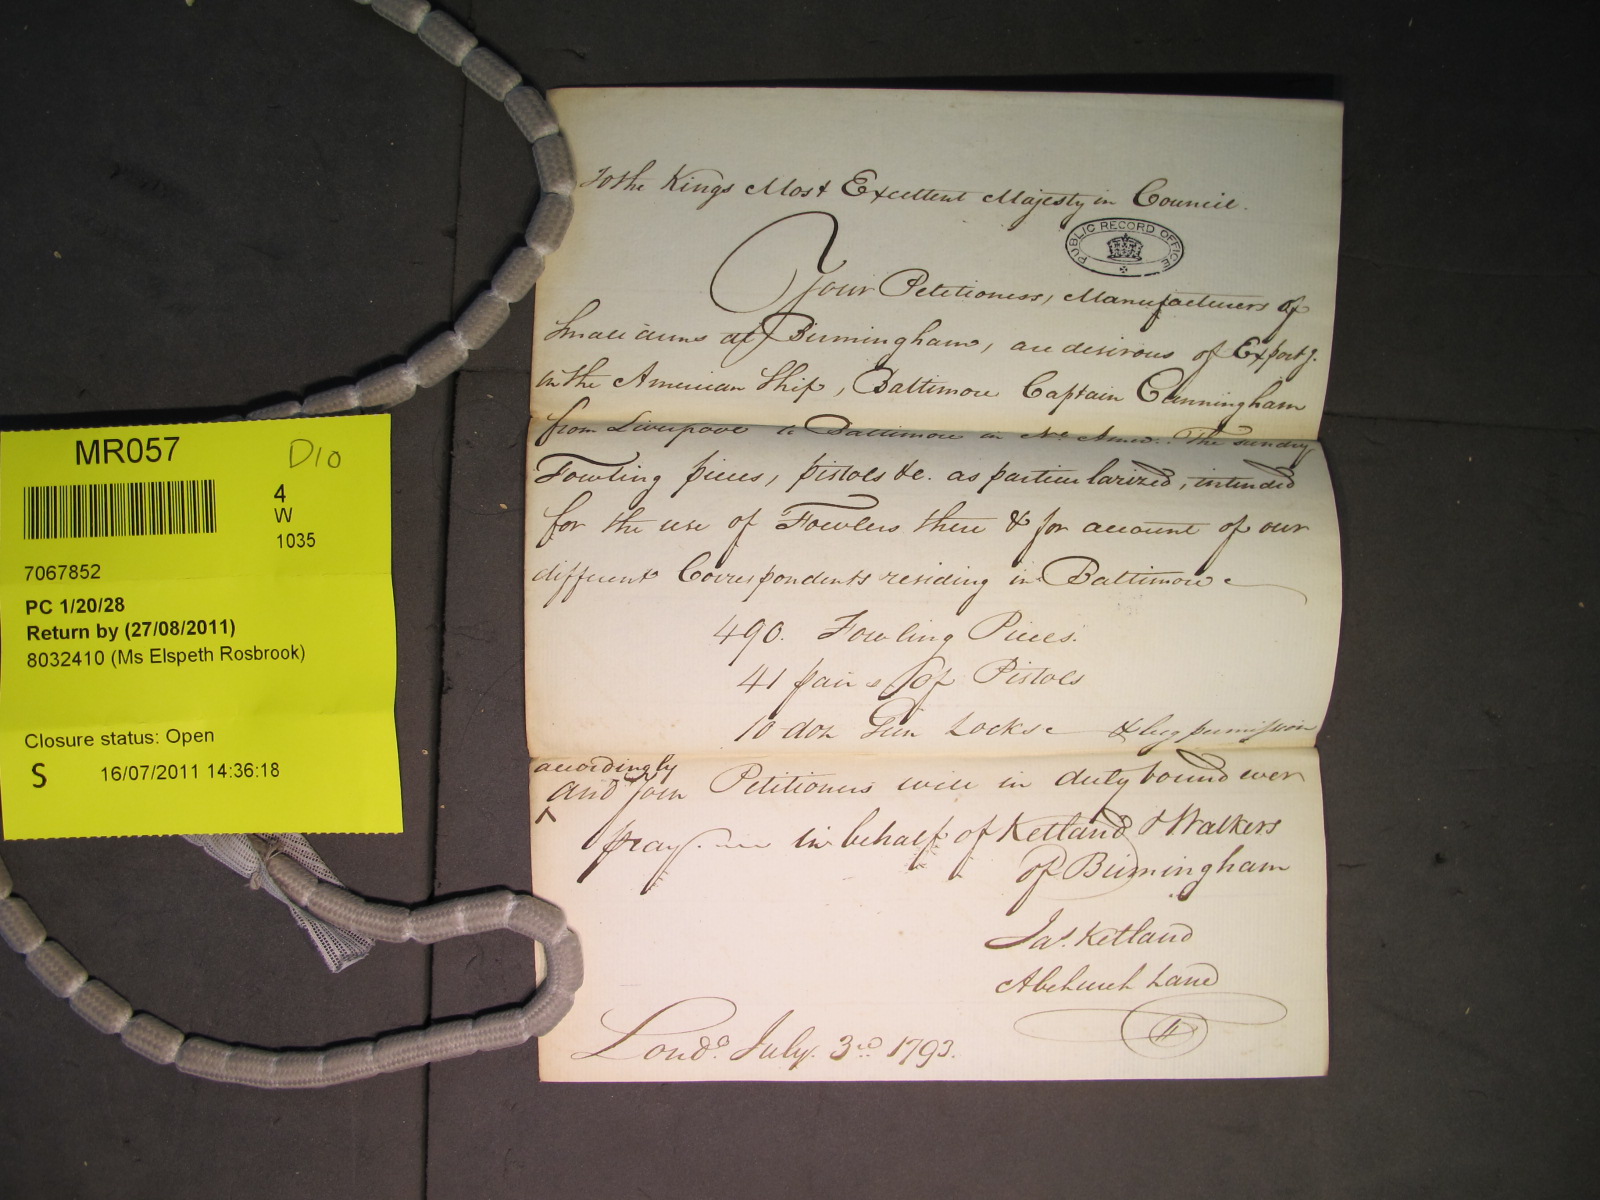 To the Kings Most Excellent Majesty in Council.
PUBLIC RECORD OFFICE
Your Petitioners, Manufacturers of
Small arms at Birmingham, are desirous of Exportg.
in the American Ship, Baltimore Captain Cunningham
from Liverpool to Baltimore in No. Amer.: The sundry
Fowling pieces, pistols &c. as particularized, intended
for the use of Fowlers there & for account of our
different Correspondents residing in Baltimore
490. Fowling Pieces.
41 pairs of Pistols
10 doz Gun Locks & beg permission
accordingly
^ And Your Petitioners will in duty bound ever
pray. in behalf of Ketland & Walkers
of Birmingham
Jas. Ketland
Abchurch Lane
Londo. July. 3rd 1793.
MR057
D10
4
W
1035
7067852
PC 1/20/28
Return by (27/08/2011)
8032410 (Ms Elspeth Rosbrook)
Closure status: Open
S 16/07/2011 14:36:18